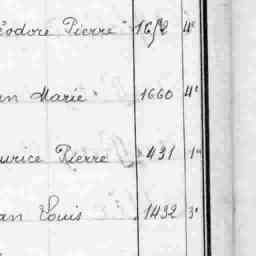 éodore Pierre 4e
an Marie 1660 4e
urice Pierre 431 1e
an Louis 1432 3e